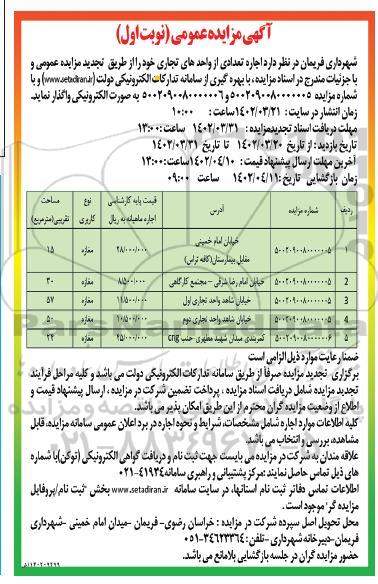 آگهی مزایده عمومی (نوبت اول)
شهرداری فریمان در نظر دارد اجاره تعدادی از واحد های تجاری خود را از طریق تجدید مزایده عمومی و
با جزئیات مندرج در اسناد مزایده ، با بهره گیری از سامانه تدارکات الکترونیکی دولت (www.setadiran.ir) و با
شماره مزایده 5002090080000005 و 5002090080000006 به صورت الکترونیکی واگذار نماید.
زمان انتشار در سایت : 1402/03/21 ساعت : 10:00
مهلت دریافت اسناد تجدیدمزایده : 1402/03/31 ساعت: 13:00
تاریخ بازدید : از تاریخ 1402/03/20 تا تاریخ 1402/03/31
آخرین مهلت ارسال پیشنهاد قیمت : 1402/04/10 ساعت: 13:00
زمان بازگشایی تاریخ: 1402/04/11 ساعت 09:00
ردیف شماره مزایده آدرس قیمت پایه کارشناسی اجاره ماهیانه به ریال نوع کاربری مساحت تقریبی(مترمربع)
1 5002090080000005 خیابان امام خمینی مقابل بیمارستان(کافه تراس) 28/000/000 مغازه 15
2 5002090080000005 خیابان امام رضا شرقی – مجتمع کارگاهی 8/500/000 مغازه 30
3 5002090080000005 خیابان شاهد واحد تجاری اول 11/500/000 مغازه 57
4 5002090080000005 خیابان شاهد واحد تجاری دوم 10/500/000 مغازه 50
5 5002090080000006 کمربندی میدان شهید مطهری -جنب cng 25/000/000 مغازه 24
ضمنا رعایت موارد ذیل الزامی است
برگزاری تجدید مزایده صرفاً از طریق سامانه تدارکات الکترونیکی دولت می باشد و کلیه مراحل فرایند
تجدید مزایده شامل دریافت اسناد مزایده ، پرداخت تضمین شرکت در مزایده ، ارسال پیشنهاد قیمت و
اطلاع از وضعیت مزایده گران محترم از این طریق امکان پذیر می باشد.
کلیه اطلاعات موارد اجاره شامل مشخصات، شرایط و نحوه اجاره در برد اعلان عمومی سامانه مزایده، قابل
مشاهده، بررسی و انتخاب می باشد.
علاقه مندان به شرکت در مزایده می بایست جهت ثبت نام و دریافت گواهی الکترونیکی (توکن) با شماره
های ذیل تماس حاصل نمایند :مرکز پشتیبانی و راهبری سامانه 41934-021
اطلاعات تماس دفاتر ثبت نام استانها، در سایت سامانه www.setadiran.ir بخش "ثبت نام/پروفایل
مزایده گر" موجود است .
محل تحویل اصل سپرده شرکت در مزایده : خراسان رضوی- فریمان -میدان امام خمینی -شهرداری
فریمان-دبیرخانه شهرداری -تلفن: 34623364-051
حضور مزایده گران در جلسه بازگشایی بلامانع می باشد.